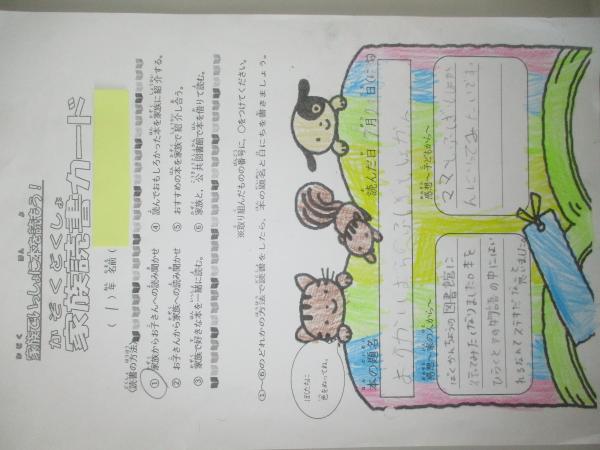 家族でいっしょに本を読もう！
かぞくどくしょ
家族読書カード
（1）年 名前（
〈読書の方法〉
① 家族からお子さんへの読み聞かせ
② お子さんから家族への読み聞かせ
③ 家族で好きな本を一緒に読む。
④ 読んでおもしろかった本を家族に紹介する。
⑤ おすすめの本を家族で紹介し合う。
⑥ 家族と、公共図書館で本を借りて読む。
※取り組んだものの番号に、○をつけてください。
①～⑥のどれかの方法で読書をしたら、本の題名と日にちを書きましょう。
自由に
色をぬってね。
本の題名
読んだ日 7月 日
感想～家の人から～
ばくかんちょうの図書館に
行ってみたくなりました。本を
ひらくとその物語の中に
れるなんてステキだなと
思いました。
感想～子どもから～
ママとふしぎしょか
んにいってみたいです。